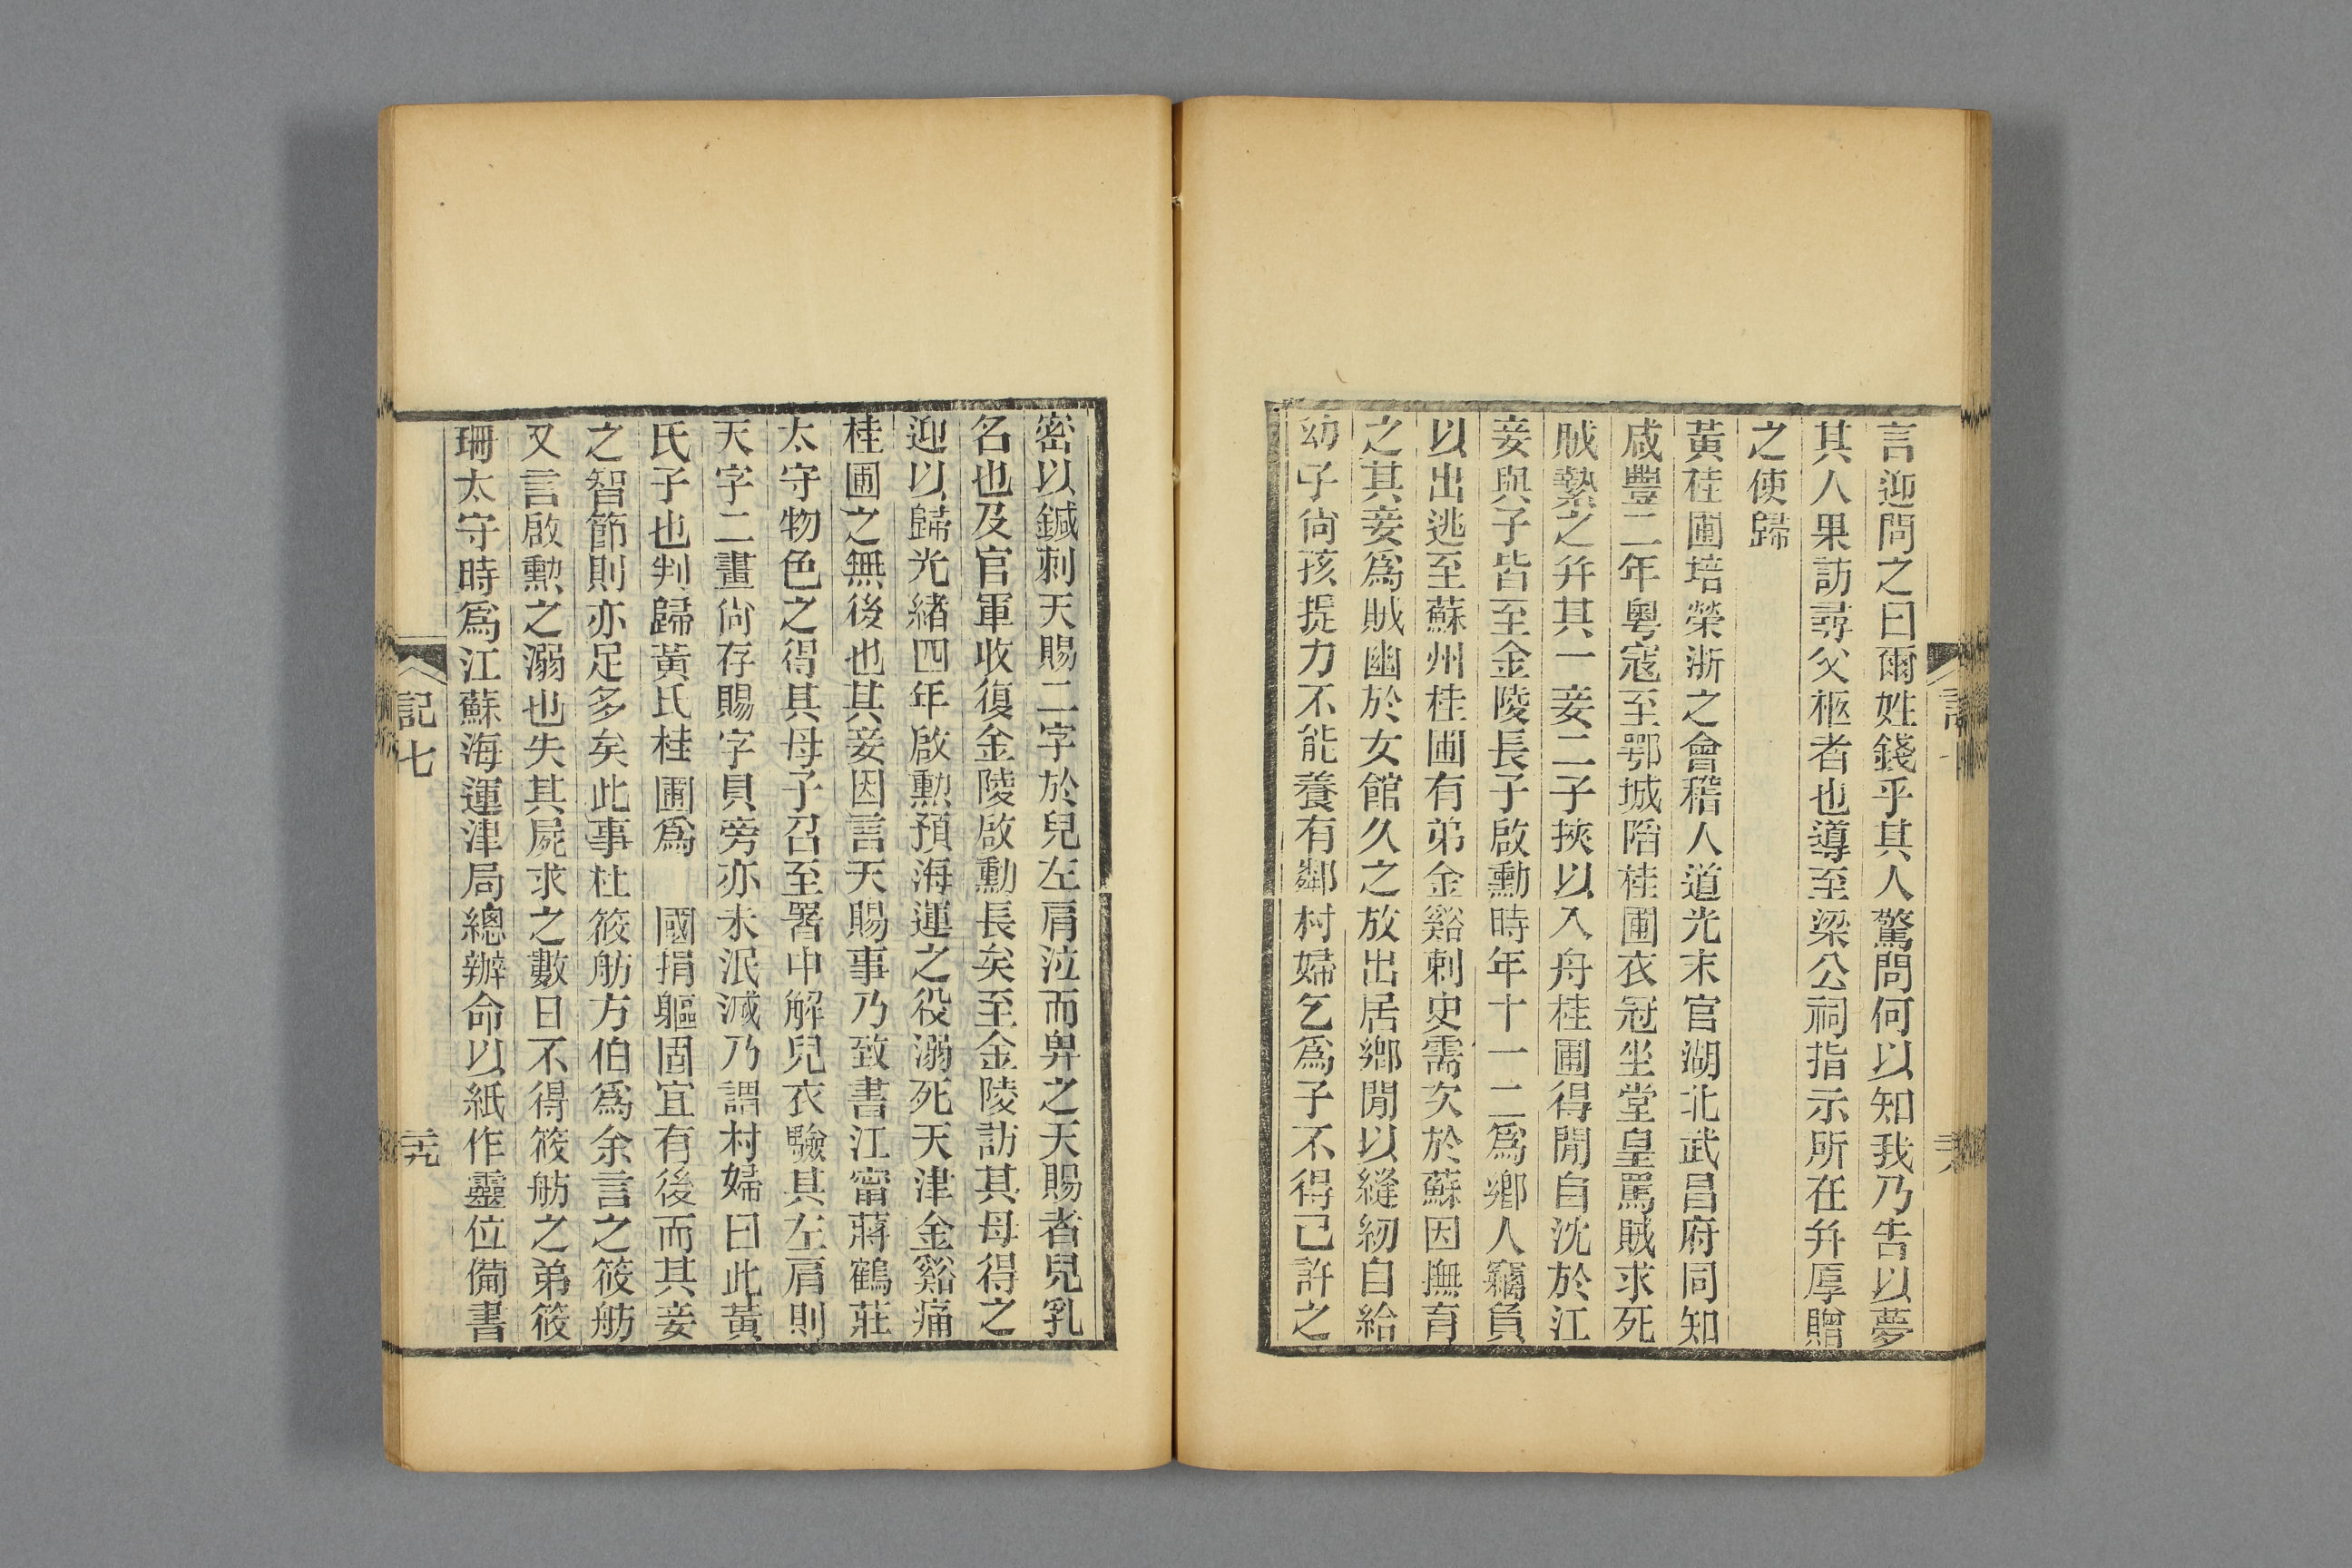 言迎問之曰爾姓錢乎其人驚問何以知我乃告以夢
其人果訪尋父柩者也導至梁公祠指示所在幷厚贈
之使歸
黃桂圃培榮浙之會稽人道光末官湖北武昌府同知
咸豐二年粵寇至鄂城陷桂圃衣冠坐堂皇罵賊求死
賊縶之幷其一妾二子挾以入舟桂圃得閒自沈於江
妾與子皆至金陵長子啟勳時年十一二爲鄕人竊負
以出逃至蘇州桂圃有弟金谿刺史需次於蘇因撫育
之其妾爲賊幽於女館久之放出居鄕閒以縫紉自給
幼子尙孩提力不能養有鄰村婦乞爲子不得已許之
密以鍼刺天賜二字於兒左肩泣而畀之天賜者兒乳
名也及官軍收復金陵啟勳長矣至金陵訪其母得之
迎以歸光緖四年啟勳預海運之役溺死天津金谿痛
桂圃之無後也其妾因言天賜事乃致書江甯蔣鶴莊
太守物色之得其母子召至署中解兒衣驗其左肩則
天字二畫尙存賜字貝旁亦未泯滅乃謂村婦曰此黃
氏子也判歸黃氏桂圃爲 國捐軀固宜有後而其妾
之智節則亦足多矣此事杜筱舫方伯爲余言之筱舫
又言啟勳之溺也失其屍求之數日不得筱舫之弟筱
珊太守時爲江蘇海運津局總辦命以紙作靈位備書
記七
二十九